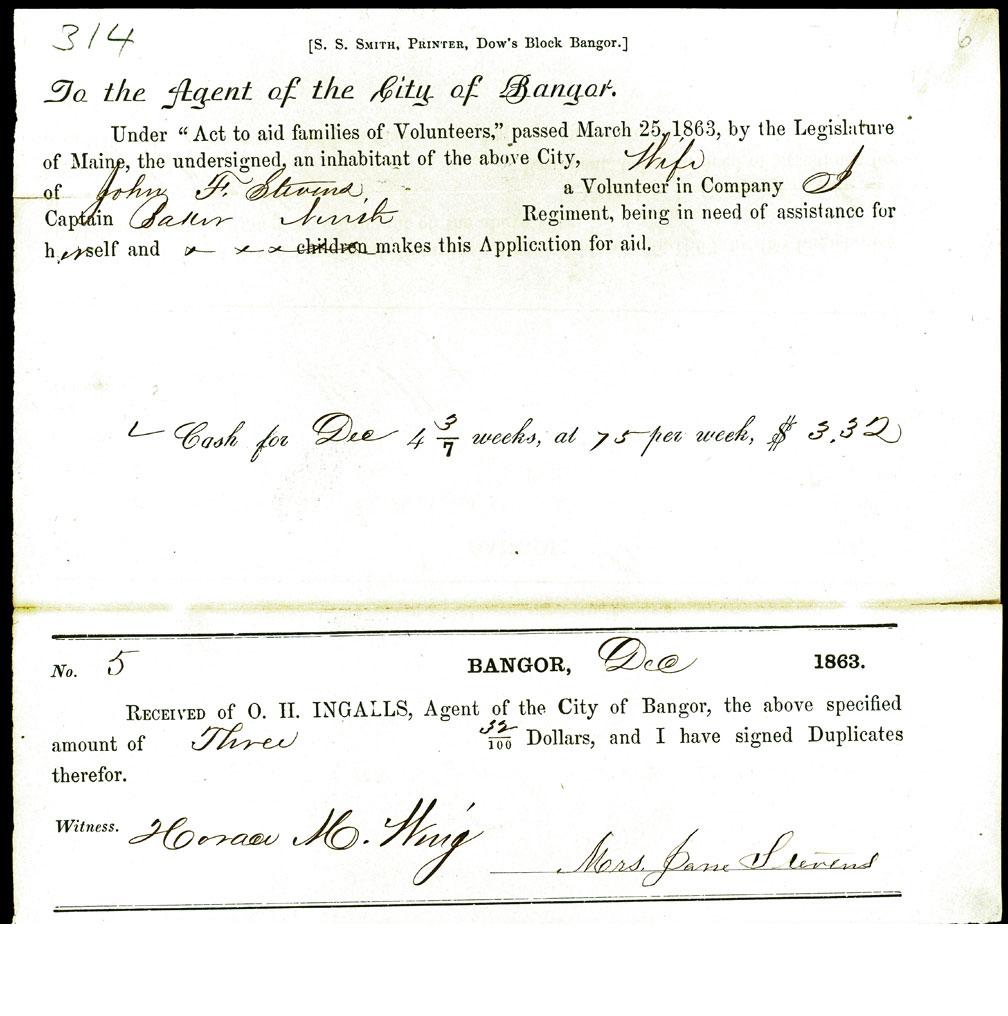 314
6
[S. S. SMITH, PRINTER, Dow's Block Bangor.]
To the Agent of the City of Bangor.
Under “Act to aid families of Volunteers,” passed March 25, 1863, by the Legislature
of Maine, the undersigned, an inhabitant of the above City, Wife
of John F. Stevens a Volunteer in Company I
Captain Baker Ninth Regiment, being in need of assistance for
herself and x x x children makes this Application for aid.
Cash for Dec 4 3/7 weeks, at 75 per week, $ 3.32
No. 5 BANGOR, Dec 1863.
RECEIVED of O. H. INGALLS, Agent of the City of Bangor, the above specified
amount of Three 32/100 Dollars, and I have signed Duplicates
therefor.
Witness. Horace M. Wing
Mrs. Jane Stevens